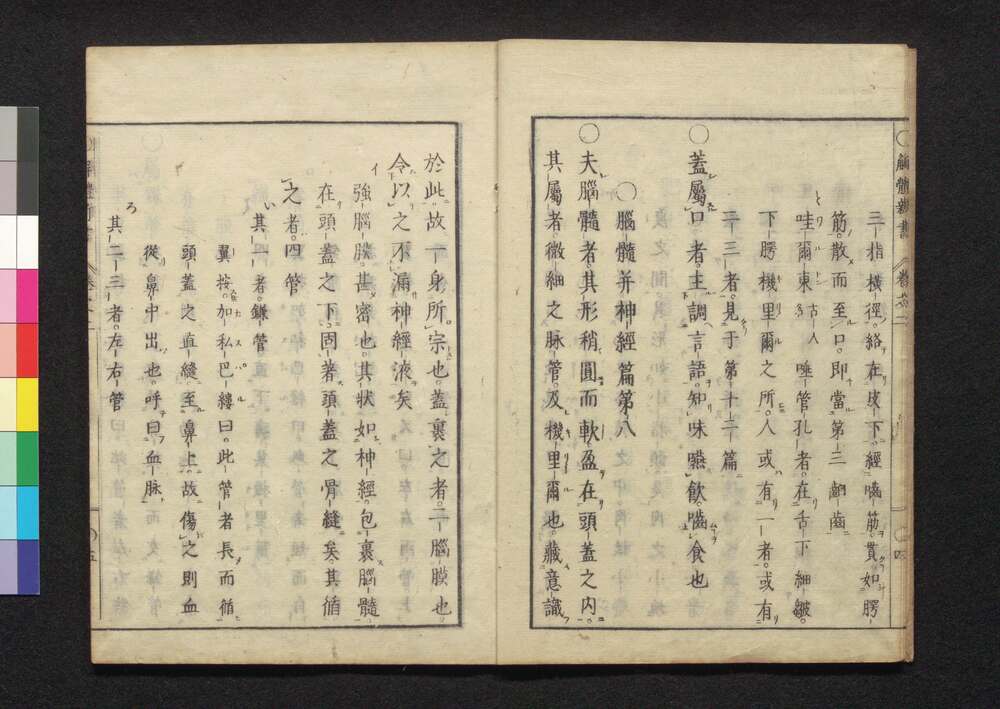 解體新書 卷之二 〇四
三指橫徑。絡在皮下。經嚙筋。貫如腭
筋。散而至口。即當第三齣齒
哇爾東 古人 唾管孔者。在舌下細皺。
下腭機里爾之所。人或有一者。或有
二三者。見于第十二篇
〇蓋屬口者。主調言語。知味嚥飲嚙食也
〇腦髓并神經篇第八
〇夫腦髓者。其形稍圓而軟。盈在頭蓋之內。
其屬者。微細之脉管。及機里爾也。藏意識
於此。故一身所宗也。蓋裏之者。二腦膜也
令以之不漏神經液矣
イ 強腦膜。甚密也。其狀如神經。包裹腦髓。
在頭蓋之下。固著頭蓋之骨縫矣。其循
之者。四管
い 其一者。鎌管
翼按。加私巴縷曰。此管者。長而循
頭蓋之直縫。至鼻上。故傷之則血
從鼻中出也。呼曰血脉
ろ 其二三者。左右管
〇五